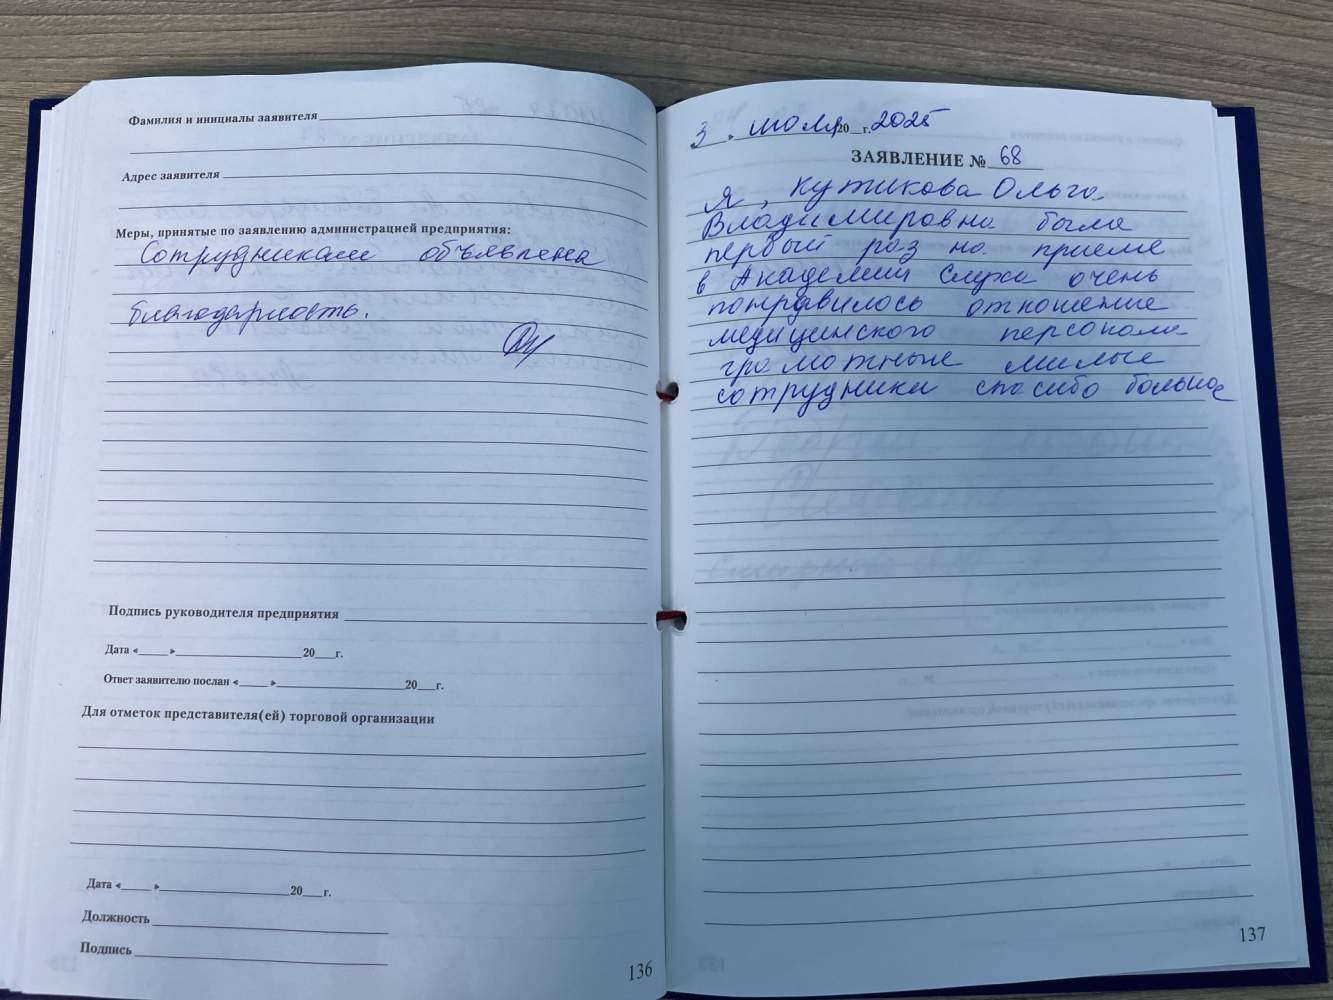 Фамилия и инициалы заявителя
Адрес заявителя
Меры, принятые по заявлению администрацией предприятия:
Сотрудникам объявлена
благодарность.
Подпись руководителя предприятия
Дата «___» ___ 20__г.
Ответ заявителю послан «___» ___ 20__г.
Для отметок представителя(ей) торговой организации
Дата «___» ___ 20__г.
Должность
Подпись
136
3 » июля 20__г. 2025
ЗАЯВЛЕНИЕ № 68
Я, Кутикова Ольга
Владимировна была
первый раз на приеме
в Академии Слуха очень
понравилось отношение
медицинского персонала
грамотные милые
сотрудники спасибо большое
137